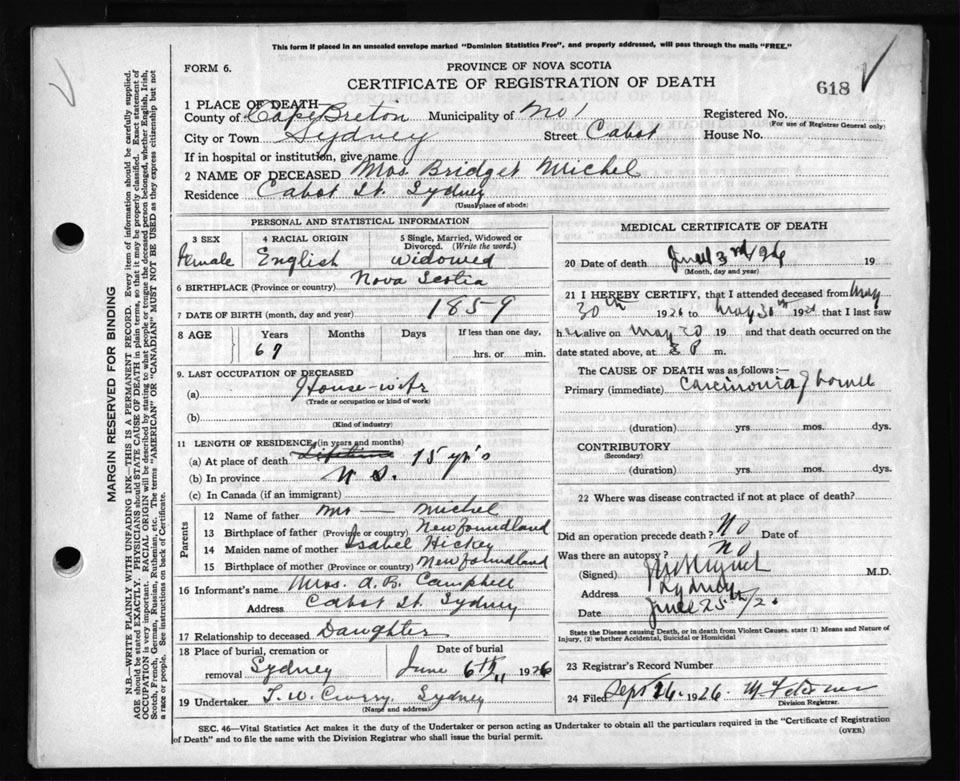 This form if placed in an unsealed envelope marked "Dominion Statistics Free", and properly addressed, will pass through the mails "FREE."
FORM 6.
PROVINCE OF NOVA SCOTIA
CERTIFICATE OF REGISTRATION OF DEATH
618
1 PLACE OF DEATH—
County of Cape Breton Municipality of No 1 Registered No.
(For use of Registrar General only)
City or Town Sydney Street Cabot House No.
If in hospital or institution, give name
2 NAME OF DECEASED Mrs Bridget Michel
Residence Cabot St. Sydney
(Usual place of abode)
PERSONAL AND STATISTICAL INFORMATION
3 SEX 4 RACIAL ORIGIN 5 Single, Married, Widowed or Divorced. (Write the word.)
Female English widowed
6 BIRTHPLACE (Province or country) Nova Scotia
7 DATE OF BIRTH (month, day and year) 1859
8 AGE Years Months Days If less than one day,
67 hrs. or min.
9. LAST OCCUPATION OF DECEASED
(a) House-wife
(Trade or occupation or kind of work)
(b)
(Kind of industry)
11 LENGTH OF RESIDENCE (in years and months)
(a) At place of death Lifetime 15 yr's
(b) In province N S.
(c) In Canada (if an immigrant)
Parents
12 Name of father Mr — Michel
13 Birthplace of father (Province or country) Newfoundland
14 Maiden name of mother Isabel Hickey
15 Birthplace of mother (Province or country) Newfoundland
16 Informant's name Mrs. A. B. Campbell
Address Cabot St. Sydney
17 Relationship to deceased Daughter
18 Place of burial, cremation or removal Sydney Date of burial June 6th 1926
19 Undertaker T. W. Curry, Sydney
(Name and address)
MEDICAL CERTIFICATE OF DEATH
20 Date of death June 3rd/26 19
(Month, day and year)
21 I HEREBY CERTIFY, that I attended deceased from May
30th 1926 to May 30th 192 that I last saw
h alive on May 30 19 and that death occurred on the
date stated above, at P m.
The CAUSE OF DEATH was as follows:—
Primary (immediate) Carcinoma of bowel
(duration) yrs. mos. dys.
CONTRIBUTORY
(Secondary)
(duration) yrs. mos. dys.
22 Where was disease contracted if not at place of death?
Did an operation precede death? No Date of
Was there an autopsy? No
(Signed) M.D.
Address Sydney
Date June 25th/26
State the Disease causing Death, or in death from Violent Causes, state (1) Means and Nature of Injury, (2) whether Accidental, Suicidal or Homicidal
23 Registrar's Record Number
24 Filed Sept 26. 1926
Division Registrar.
SEC. 46—Vital Statistics Act makes it the duty of the Undertaker or person acting as Undertaker to obtain all the particulars required in the "Certificate of Registration
of Death" and to file the same with the Division Registrar who shall issue the burial permit.
(OVER)
MARGIN RESERVED FOR BINDING
N.B.—WRITE PLAINLY WITH UNFADING INK—THIS IS A PERMANENT RECORD. Every item of information should be carefully supplied.
AGE should be stated EXACTLY. PHYSICIANS should STATE CAUSE OF DEATH in plain terms, so that it may be properly classified. Exact statement of
OCCUPATION is very important. RACIAL ORIGIN will be described by stating to what people or tongue the deceased person belonged, whether English, Irish,
Scotch, French, German, Russian, Ruthenian, etc. The terms "AMERICAN" OR "CANADIAN" MUST NOT BE USED as they express citizenship but not
a race or people. See instructions on back of Certificate.